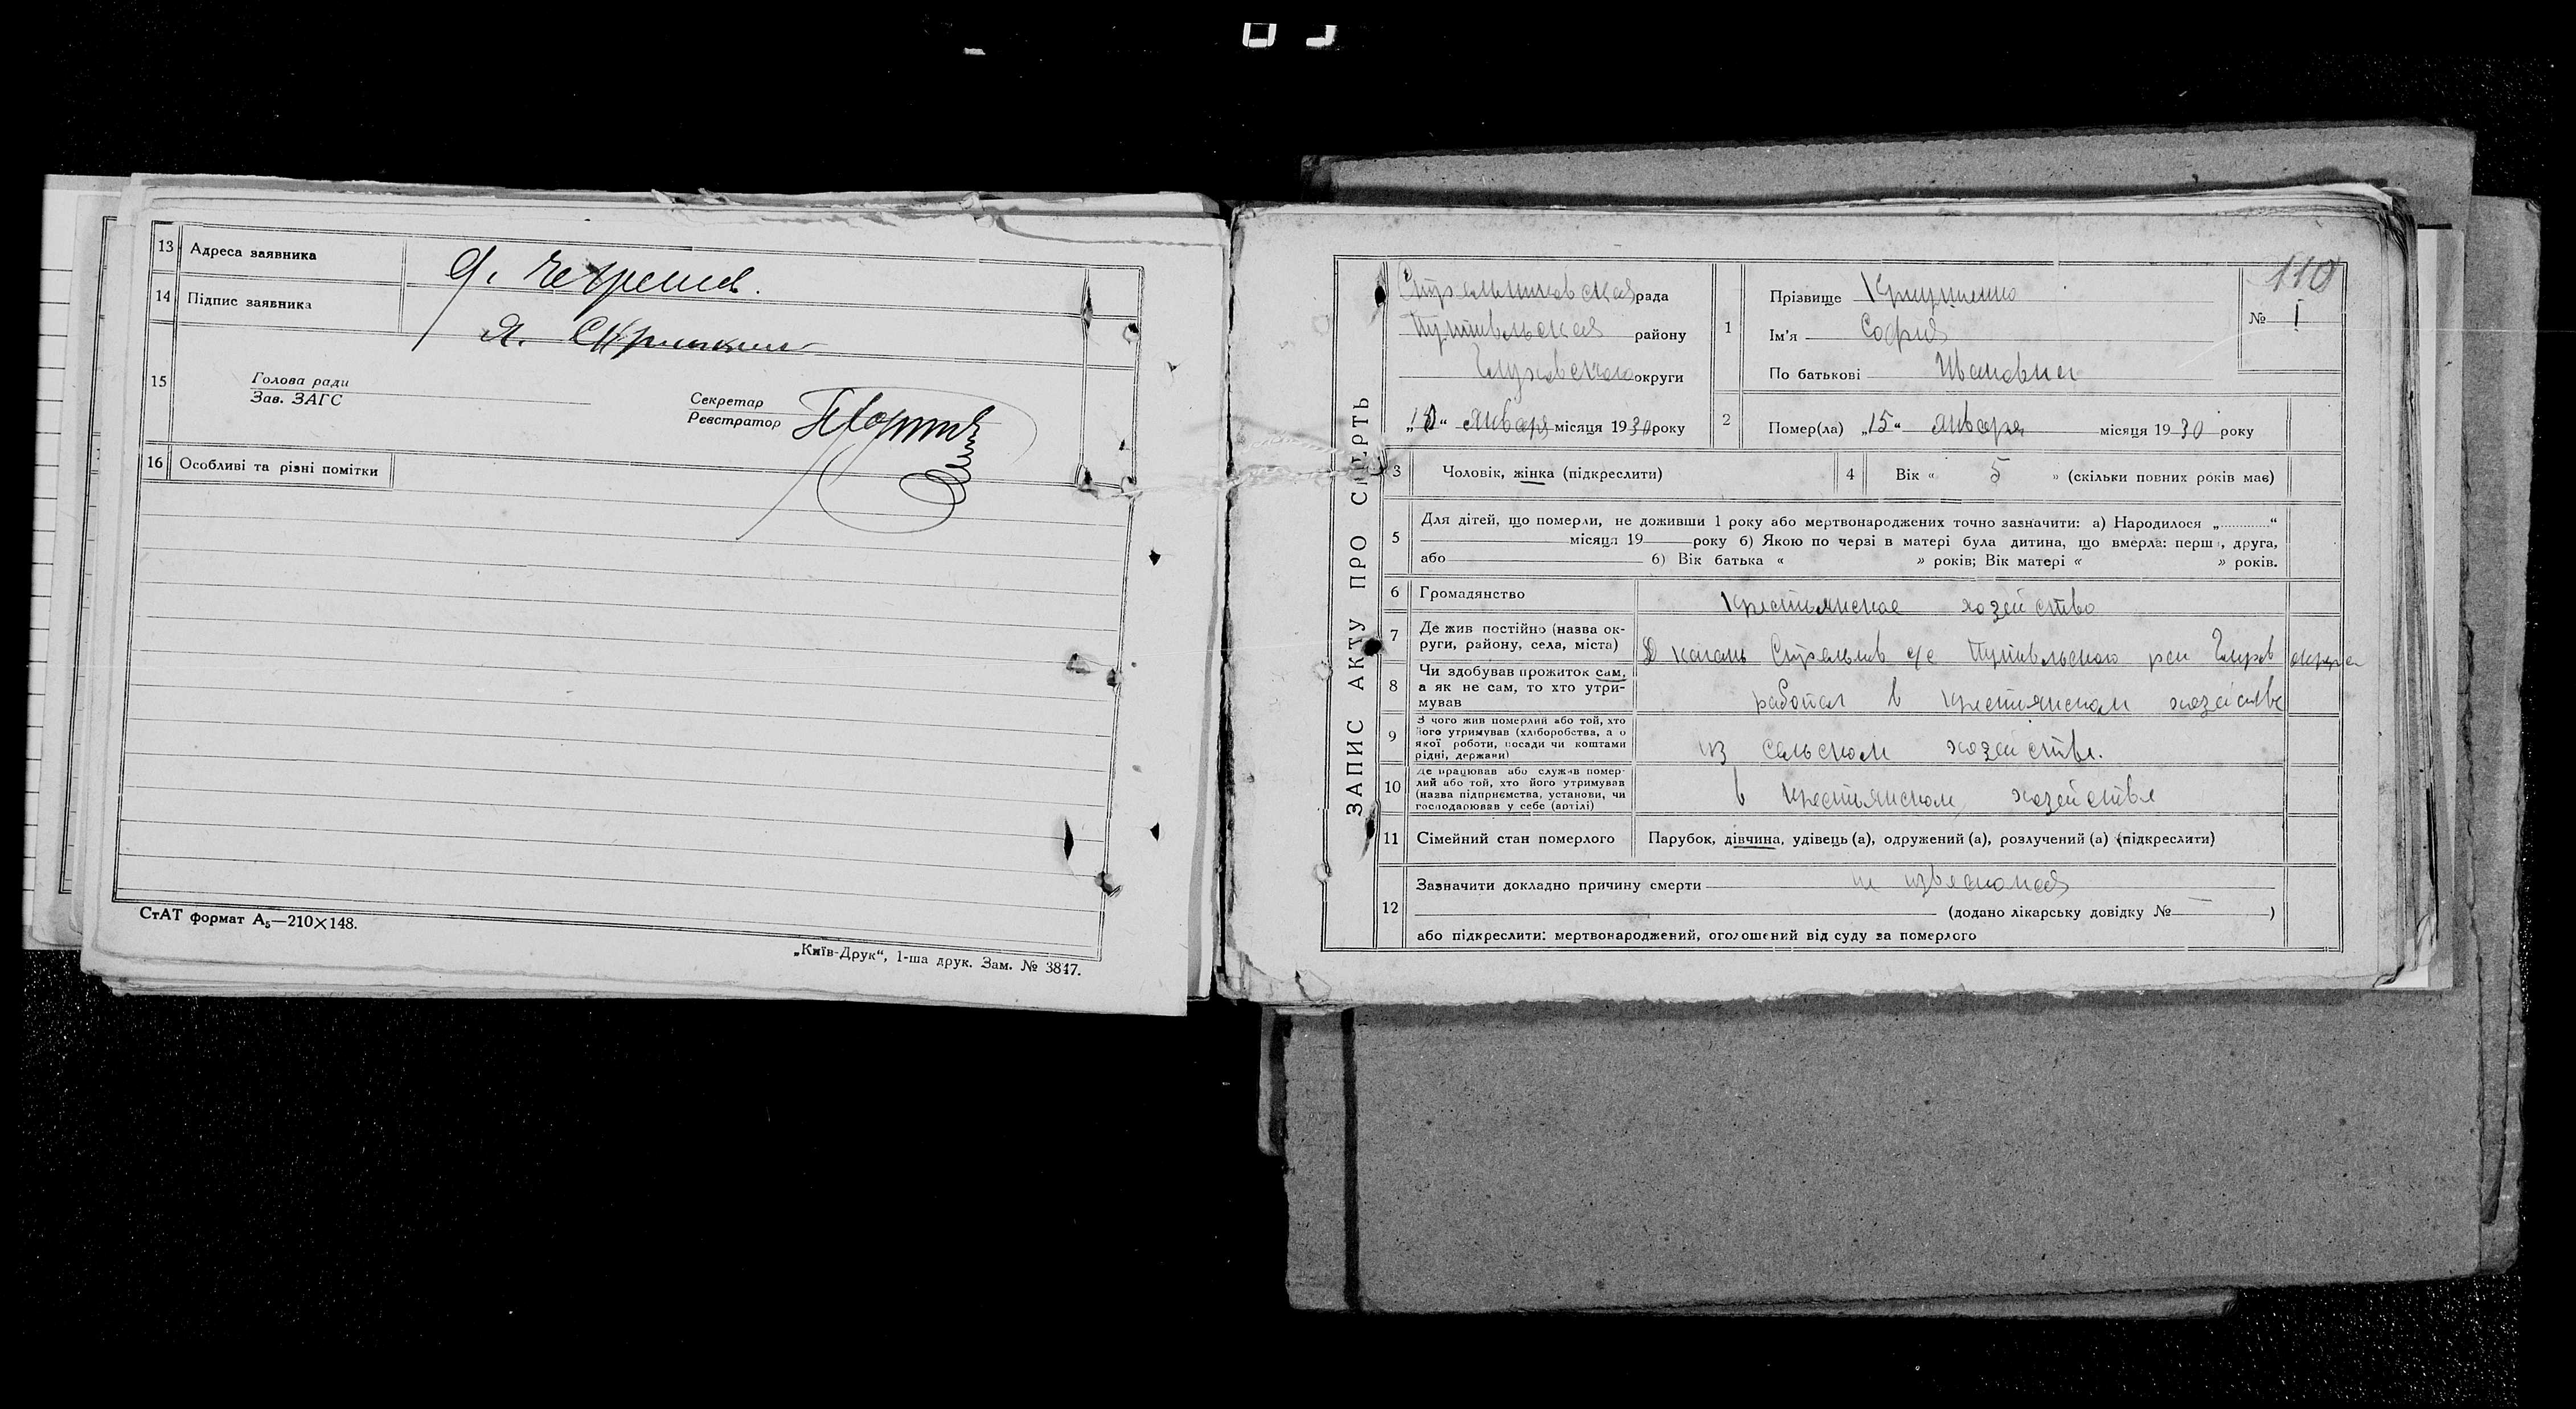 13 Адреса заявника
14 Підпис заявника
Я.
15 Голова ради
Зав. ЗАГС
Секретар
Реєстратор
16 Особливі та різні помітки
СтАТ формат А5—210×148.
„Київ-Друк“, 1-ша друк. Зам. № 3847.
ЗАПИС АКТУ ПРО СМЕРТЬ
110
Стрельниковская рада
Путивльская району
Глуховского округи
января місяця 1930 року
1 Прізвище
Ім'я София
По батькові Ивановна
№ 1
2 Помер(ла) „15“ января місяця 1930 року
3 Чоловік, жінка (підкреслити)
4 Вік « 5 » (скільки повних років має)
5 Для дітей, що померли, не доживши 1 року або мертвонароджених точно зазначити: а) Народилося „.............“
місяця 19 року б) Якою по черзі в матері була дитина, що вмерла: перша, друга,
або 6) Вік батька « » років; Вік матері « » років.
6 Громадянство Крестьянское хозейство
7 Де жив постійно (назва округи, району, села, міста) Стрельнів с/с Путивльского округа
8 Чи здобував прожиток сам, а як не сам, то хто утримував работал в крестьянском хозействе
9 З чого жив померлий або той, хто його утримував (хліборобства, а о якої роботи, посади чи коштами рідні, держави) из сельском хозействе.
10 Де працював або служив померлий або той, хто його утримував (назва підприємства, установи, чи господарював у себе (артілі) в крестьянском хозействе
11 Сімейний стан померлого Парубок, дівчина, удівець (а), одружений (а), розлучений (а) (підкреслити)
12 Зазначити докладно причину смерти не
(додано лікарську довідку № — )
або підкреслити: мертвонароджений, оголошений від суду за померлого